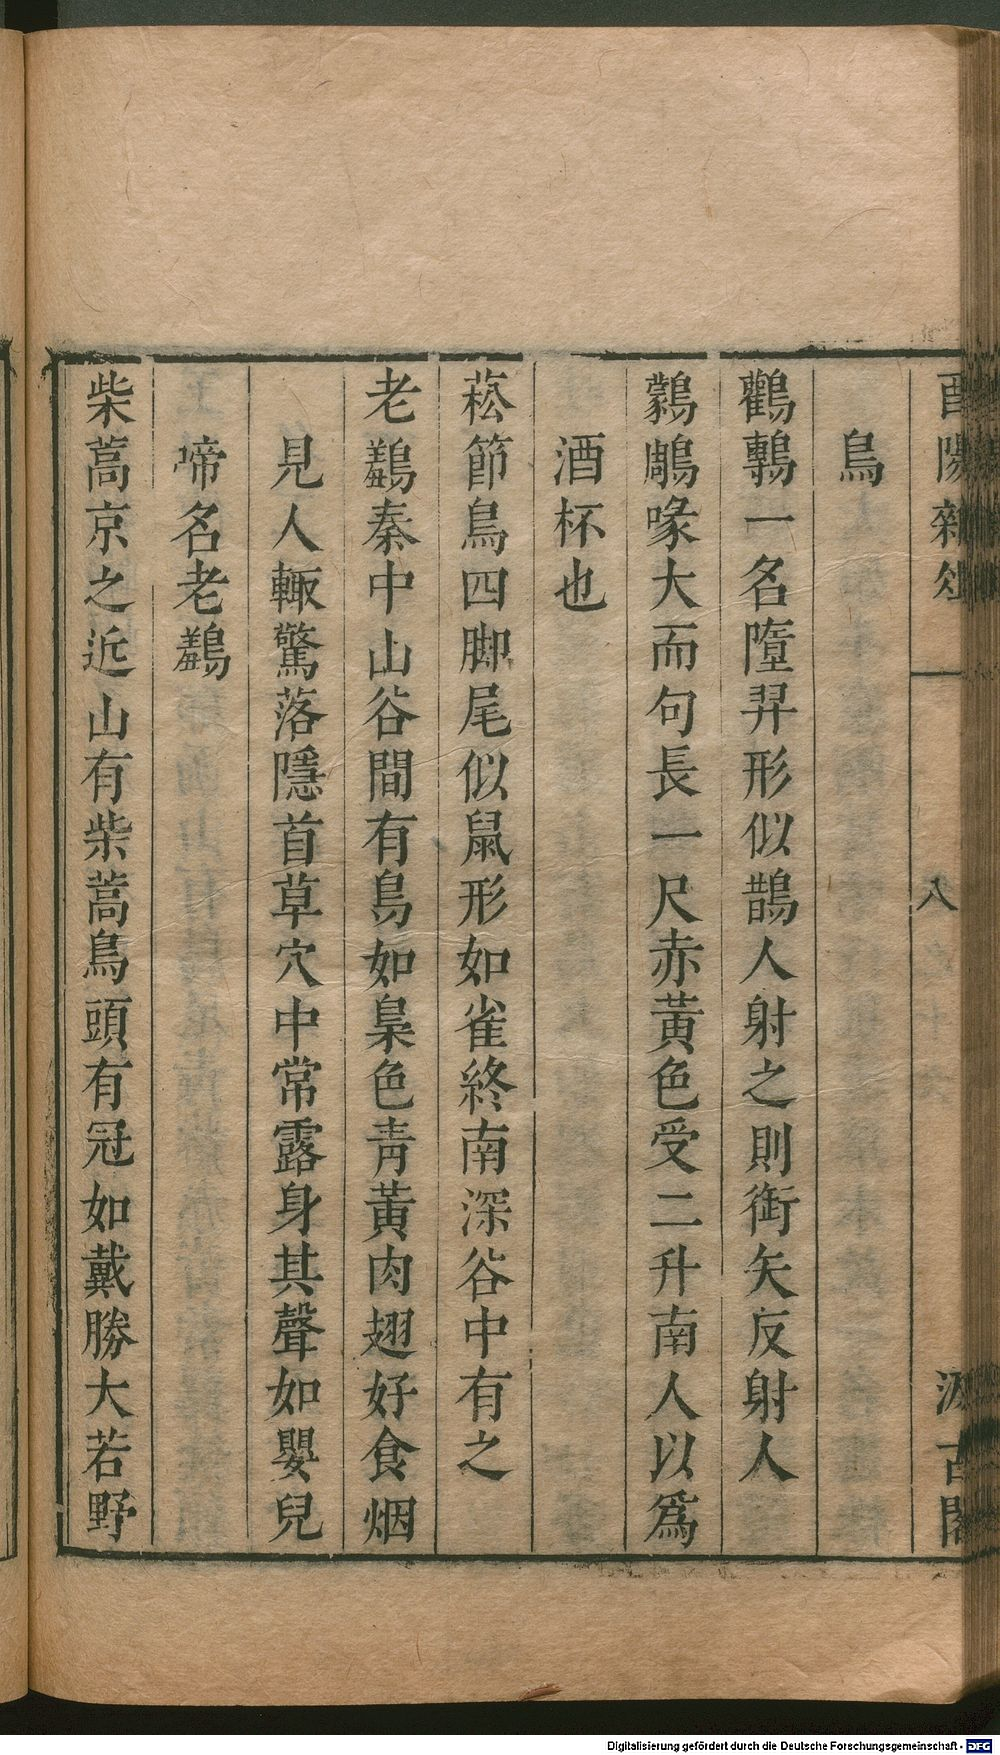 酉陽雜俎 八 汲古閣
鳥
鸛鶾一名隨羿形似鵲人射之則銜矢反射人
鸏䳟喙大而句長一尺赤黃色受二升南人以爲
酒杯也
菘節鳥四脚尾似鼠形如雀終南深谷中有之
老鵋秦中山谷間有鳥如梟色青黃肉翅好食烟
見人輙驚落隱首草穴中常露身其聲如嬰兒
啼名老鵋
柴蒿京之近山有柴蒿鳥頭有冠如戴勝大若野
Digitalisierung gefördert durch die Deutsche Forschungsgemeinschaft - DFG